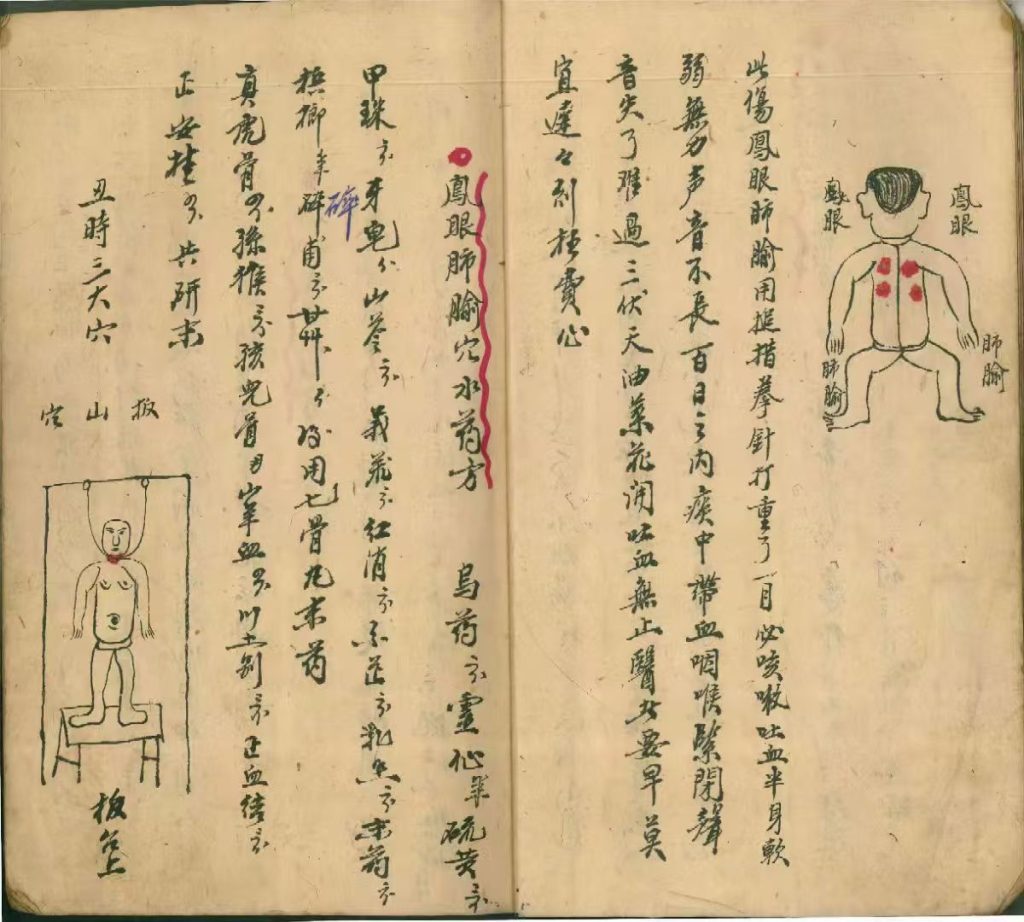 鳳眼
鳳眼
肺腧
肺腧
此傷鳳眼肺腧用挺指拳針打重了一月必咳嗽吐血半身軟
弱無力声音不長百日之内痰中帶血咽喉緊閉聲
音失了难過三伏天油菜花開吐血無止醫者要早莫
宜遲々刻極費心
鳳眼肺腧穴水药方
烏药 靈仙 硫黄
甲珠 牙皂 山苓 莪荗 红消 乳 末药
梹榔 碎 碎 甘艸 後用七骨丸末药
真虎骨 孫猴 孩兒骨 血 川土别 正血结
正安桂 共研末
丑時三大穴
扳山穴
板台上